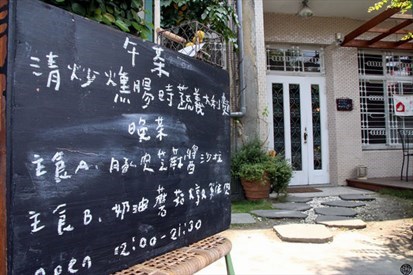 午茶
清炒燻腸時蔬義大利麵
晚茶
主食A. 豚肉芝麻醬沙拉
主食B. 奶油蘑菇
open 12:00-21:30